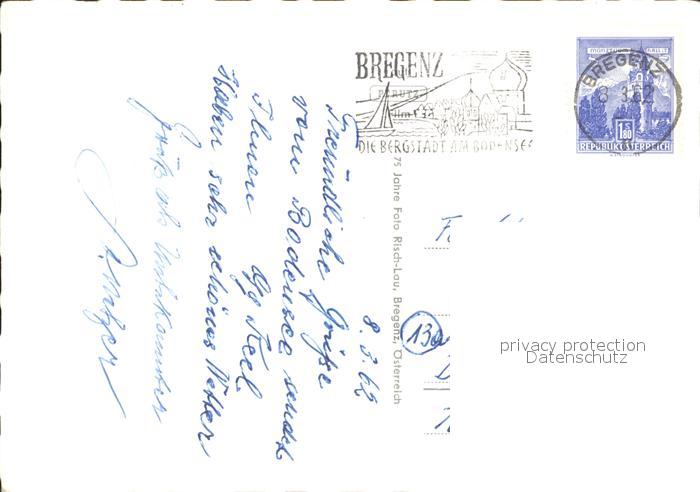 BREGENZ
DIE BERGSTADT AM BODENSEE
BREGENZ
8.3.62
1.80
REPUBLIK ÖSTERREICH
8.3.62
Freundliche Grüße
vom Bodensee sendet
Ihnen
Haben sehr schönes Wetter
Gruß als Unbekannter
75 Jahre Foto Risch-Lau, Bregenz, Österreich
13a
privacy protection
Datenschutz